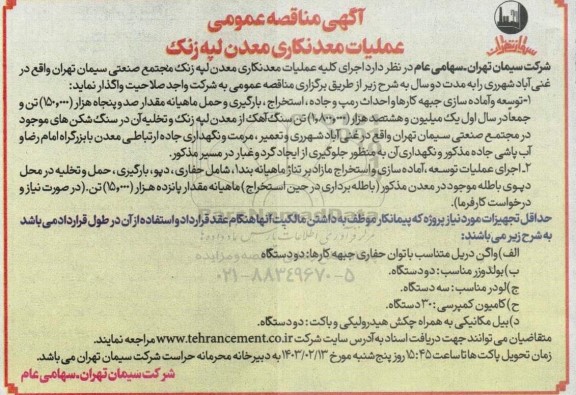 آگهی مناقصه عمومی
عملیات معدنکاری معدن لپه زنک
سیمان تهران
شرکت سیمان تهران-سهامی عام در نظر دارد اجرای کلیه عملیات معدنکاری معدن لپه زنک مجتمع صنعتی سیمان تهران واقع در
غنی آباد شهرری را به مدت دو سال به شرح زیر از طریق برگزاری مناقصه عمومی به شرکت واجد صلاحیت واگذار نماید:
۱-توسعه و آماده سازی جبهه کارها و احداث رمپ و جاده، استخراج، بارگیری و حمل ماهیانه مقدار صد و پنجاه هزار (۱۵۰,۰۰۰) تن و
جمعا در سال اول یک میلیون و هشتصد هزار (۱,۸۰۰,۰۰۰) تن سنگ آهک از معدن لپه زنک و تخلیه آن در سنگ شکن های موجود
در مجتمع صنعتی سیمان تهران واقع در غنی آباد شهرری و تعمیر، مرمت و نگهداری جاده ارتباطی معدن با بزرگراه امام رضا و
آب پاشی جاده مذکور و نگهداری آن به منظور جلوگیری از ایجاد گرد و غبار در مسیر مذکور.
۲-اجرای عملیات توسعه، آماده سازی و استخراج مازاد بر تناژ ماهیانه بند۱، شامل حفاری، دپو، بارگیری، حمل و تخلیه در محل
دپوی باطله موجود در معدن مذکور (باطله برداری در حین استخراج) ماهیانه مقدار پانزده هزار (۱۵,۰۰۰) تن. (در صورت نیاز و
درخواست کارفرما).
حداقل تجهیزات مورد نیاز پروژه که پیمانکار موظف به داشتن مالکیت آنها هنگام عقد قرارداد و استفاده از آن در طول قرارداد می باشد
به شرح زیر می باشند:
الف) واگن دریل متناسب با توان حفاری جبهه کارها: دو دستگاه
ب) بولدوزر مناسب: دو دستگاه.
ج) لودر مناسب: سه دستگاه.
ح) کامیون کمپرسی: ۳۰ دستگاه.
د) بیل مکانیکی به همراه چکش هیدرولیکی و باکت: دو دستگاه.
۰۲۱-۸۸۳۴۹۶۷۰-۵
متقاضیان می توانند جهت دریافت اسناد به آدرس سایت شرکت www.tehrancement.co.ir مراجعه نمایند.
زمان تحویل پاکت ها تا ساعت ۱۵:۴۵ روز پنج شنبه مورخ ۱۴۰۳/۰۲/۱۳ به دبیرخانه محرمانه حراست شرکت سیمان تهران می باشد.
شرکت سیمان تهران-سهامی عام